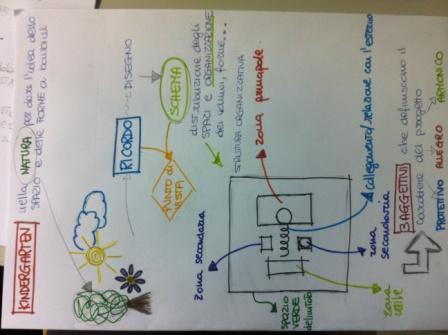 KINDERGARTEN
nella NATURA per dare l'idea dello
SPAZIO e delle FORME ai bambini
RICORDO
DISEGNO
PUNTO di
VISTA
SCHEMA
distribuzione degli
SPAZI e ORGANIZZAZIONE
dei volumi, forme...
STRUTTURA ORGANIZZATIVA
zona principale
zona secondaria
collegamento/relazione con l'esterno
zona
secondaria
SPAZIO
VERDE
delimitato
zona
utile
3 AGGETTIVI che definiscono il
carattere del progetto
PROTETTIVO ALLEGRO ARMONICO